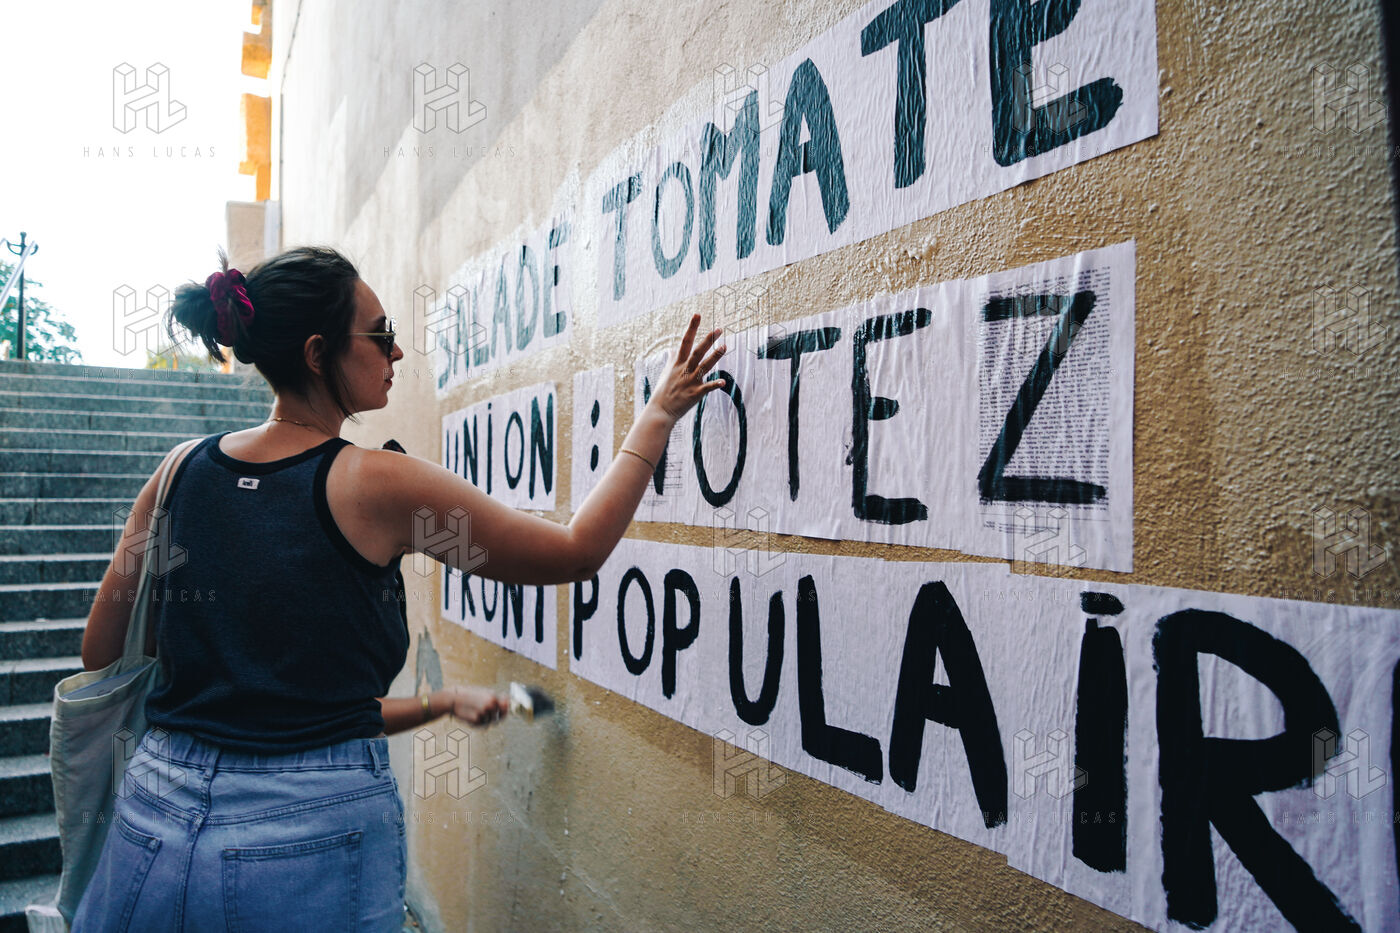 SALADE TOMATE
UNION : VOTEZ
FRONT POPULAIR
HANS LUCAS